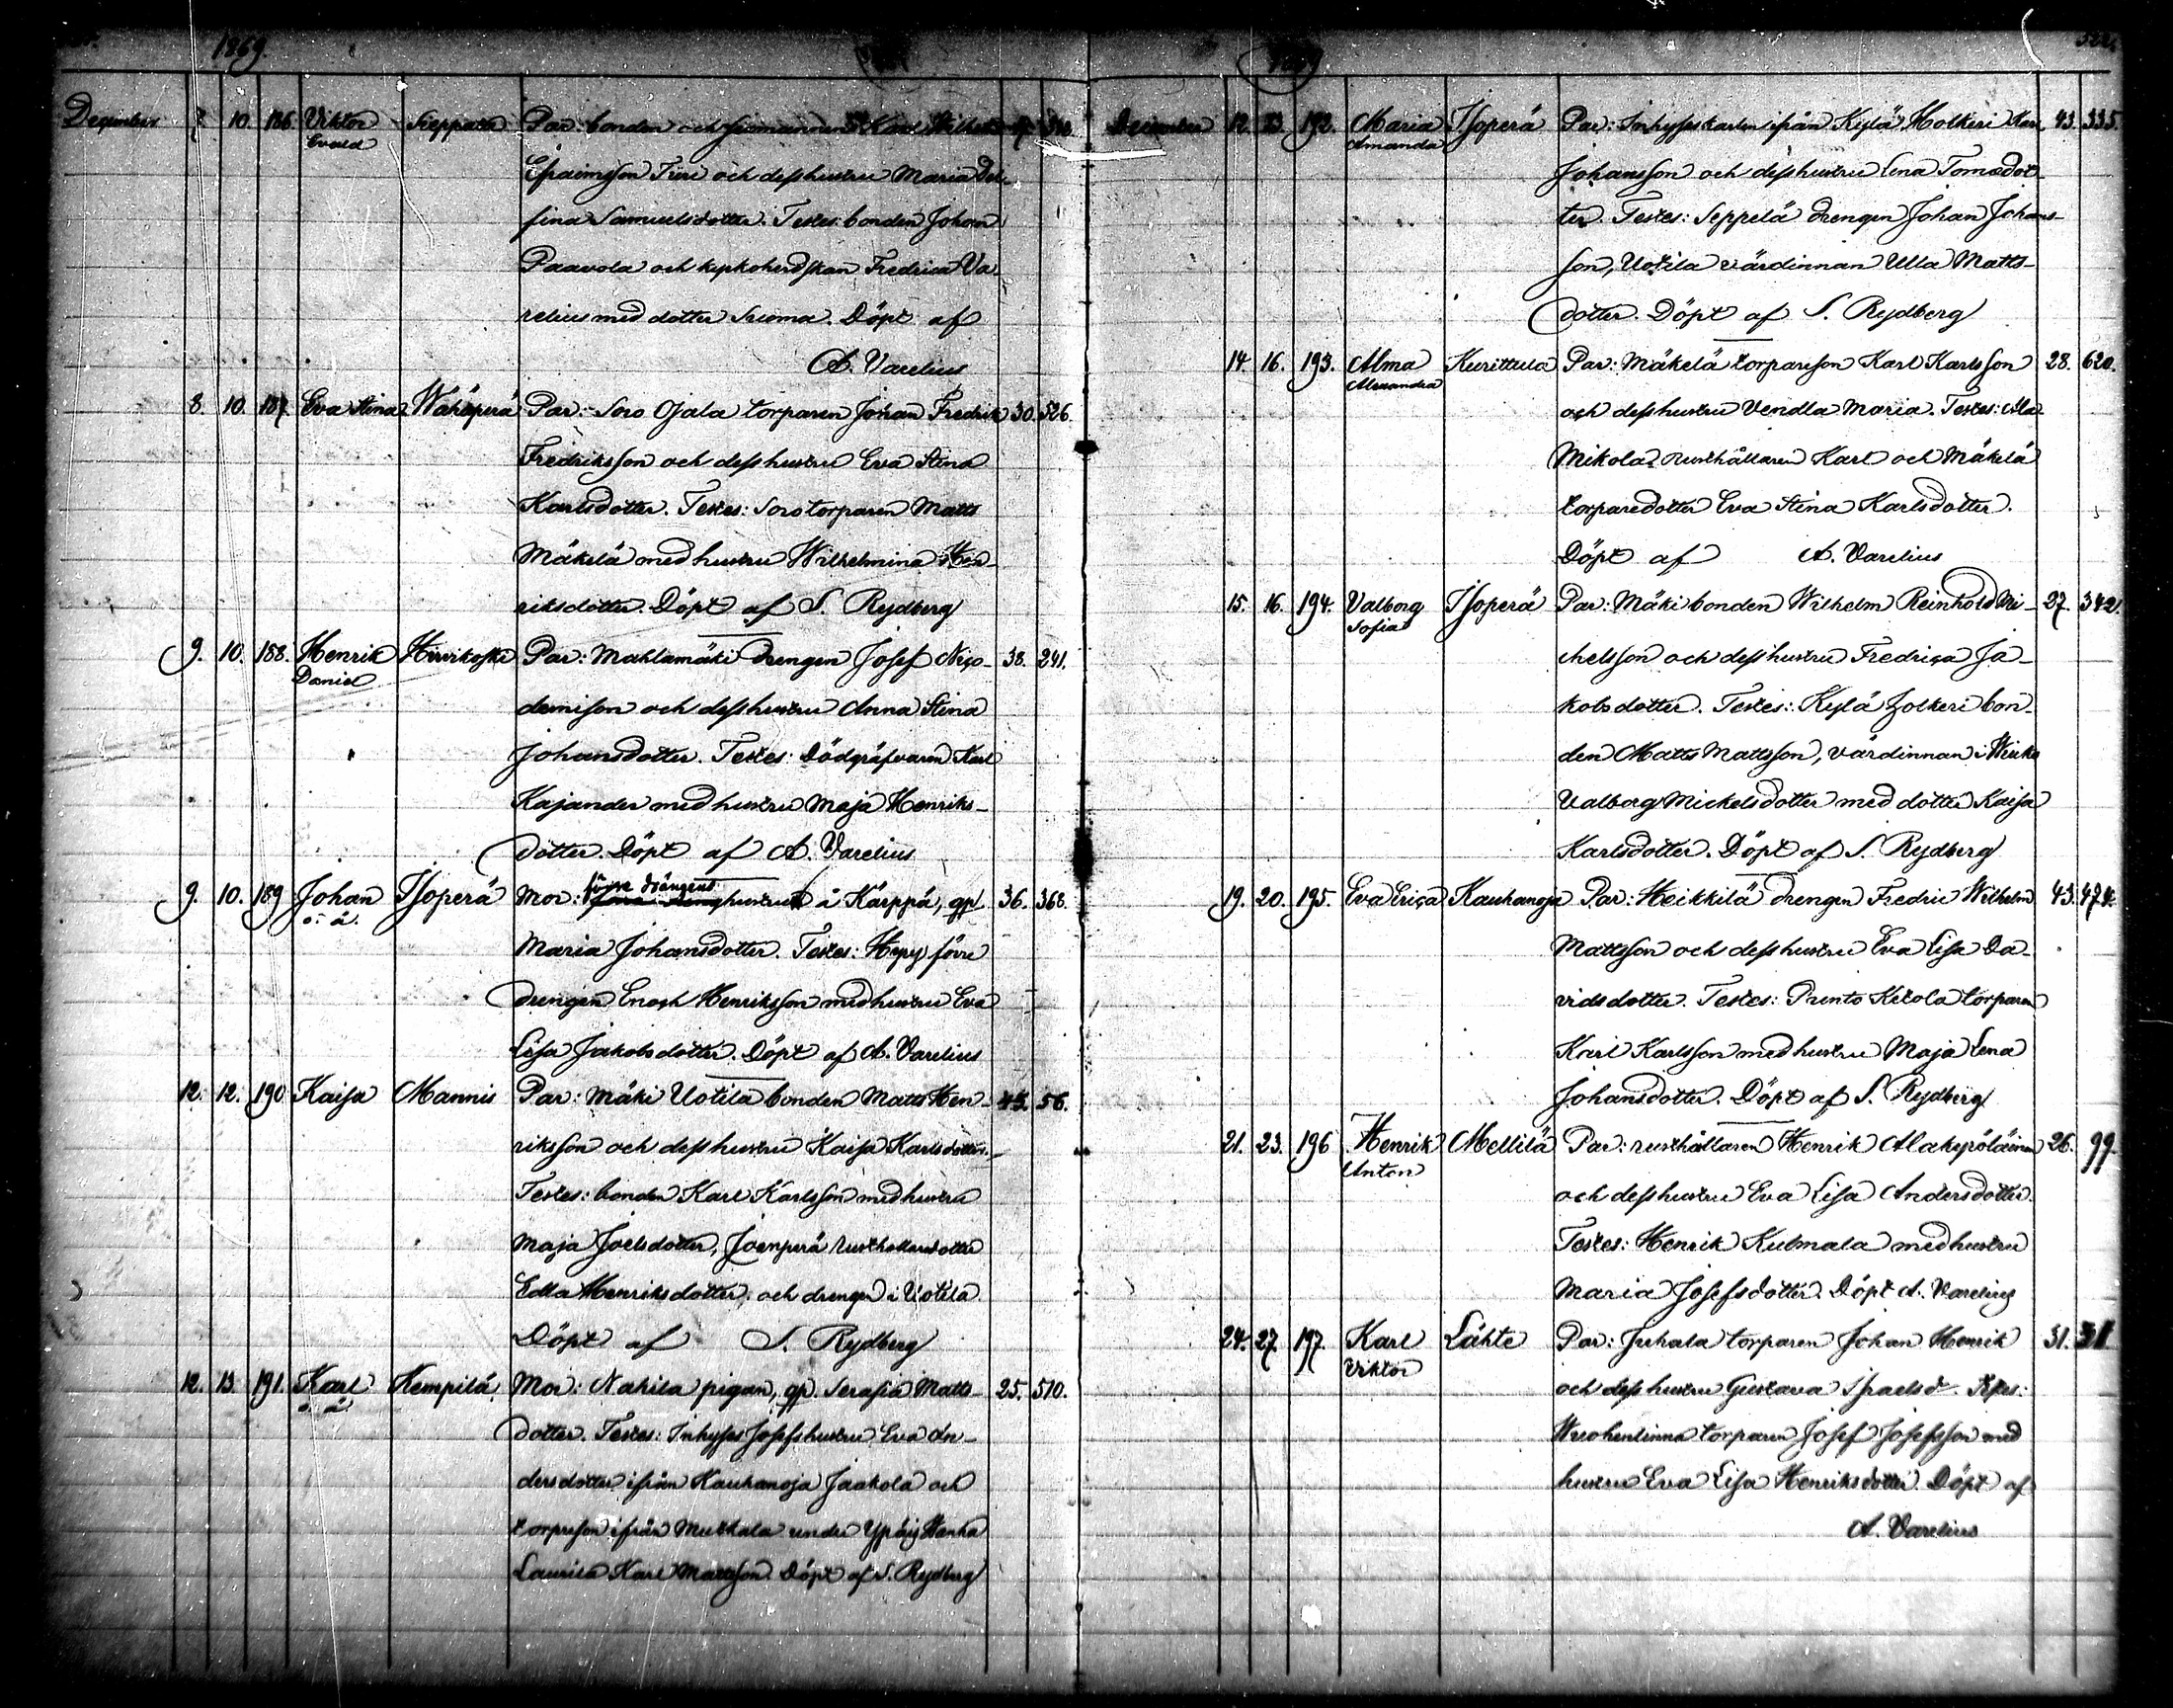 1869.
December 7. 10. 186. Viktor Sieppala Par: bonden och Karl Wilhelm
Evald
Efraimsson och dess hustru Maria Del-
fina Samuelsdotter. Testes: bonden Johan
Paavola och kyrkoherdskan Fredrica Va-
relius med dotter Suoma. Döpt af
A. Varelius
8. 10. 187. Eva Stina Wähäperä Par: Soro Ojala torparen Johan Fredrik 30. 526.
Fredriksson och dess hustru Eva Stina
Karlsdotter. Testes: Soro torparen Matts
Mäkelä med hustru Wilhelmina Hen-
riksdotter. Döpt af S. Rydberg
9. 10. 188. Henrik Hirvikoski Par: Mahlamäki drengen Josef Nico- 38. 241.
Daniel
demison och dess hustru Anna Stina
Johansdotter. Testes: Dödgräfvaren Karl
Kajander med hustru Maja Henriks-
dotter. Döpt af A. Varelius
9. 10. 189 Johan Isoperä Mor: förre drängens hustru å Kärppä, gp. 36. 368.
o. ä.
Maria Johansdotter. Testes: Hepy förre
drengen Enoch Henriksson med hustru Eva
Lisa Jakobsdotter. Döpt af A. Varelius
12. 12. 190 Kaisa Mannis Par: Mäki Uotila bonden Matts Hen- 45. 56.
riksson och dess hustru Kaisa Karlsdotter.
Testes: bonden Karl Karlsson med hustru
Maja Joelsdotter, Joenperä rusthållaredotter
Edla Henriksdotter, och drengen i Uotila
Döpt af S. Rydberg
12. 13. 191. Karl Kempilä Mor: Nahila pigan, gp. Serafia Matts- 25. 510.
o. ä.
dotter. Testes: Inhyses Josefs hustru Eva An-
dersdotter ifrån Kauhanoja Jaakola och
torpareson ifrån Muskala under Ypäjä Wanha
Laurila Karl Mattsson. Döpt af S. Rydberg
1869
December 12. 13. 192. Maria Isoperä Par: Inhyses karlen ifrån Kylä Holkeri Karl 43. 335.
Amanda
Johansson och dess hustru Lena Tomasdot-
ter. Testes: Seppelä drengen Johan Johans-
son, Uotila värdinnan Ulla Matts-
dotter. Döpt af S. Rydberg
14. 16. 193. Alma Kurittula Par: Mäkelä torpareson Karl Karlsson 28. 620.
Alexandra
och dess hustru Vendla Maria. Testes: Ala
Mikola rusthållaren Karl och Mäkelä
torparedotter Eva Stina Karlsdotter.
Döpt af A. Varelius
15. 16. 194. Valborg Isoperä Par: Mäki bonden Wilhelm Reinhold Mi- 27. 342.
Sofia
chelsson och dess hustru Fredrica Ja-
kobsdotter. Testes: Kylä Holkeri bon-
den Matts Mattsson, värdinnan i
Valborg Mickelsdotter med dotter Kaisa
Karlsdotter. Döpt af S. Rydberg
19. 20. 195. Eva Erica Kauhanoja Par: Heikkilä drengen Fredric Wilhelm 43. 474.
Mattsson och dess hustru Eva Lisa Da-
vidsdotter. Testes: Prunto Ketola torparen
Karl Karlsson med hustru Maja Lena
Johansdotter. Döpt af S. Rydberg
21. 23. 196 Henrik Mellilä Par: rusthållaren Henrik Alakypöläinen 26. 99.
Anton
och dess hustru Eva Lisa Andersdotter.
Testes: Henrik Kulmala med hustru
Maria Josefsdotter. Döpt A. Varelius
24. 27. 197. Karl Lähte Par: Juhala torparen Johan Henrik 31. 31
Viktor
och dess hustru Gustava Israelsd. Testes:
Wuohenlinna torparen Josef Josefsson med
hustru Eva Lisa Henriksdotter. Döpt af
A. Varelius